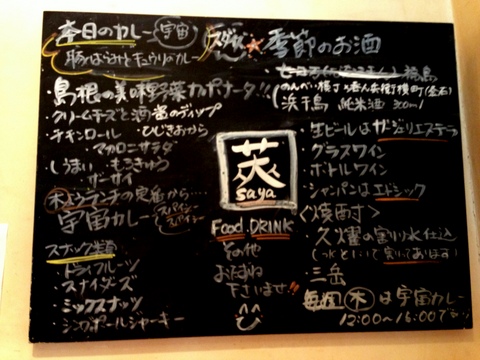 本日のカレー 宇宙
豚ばらみとキュウリのカレー
・島根の美味野菜カポナータ!!
・クリームチーズと酒盗のディップ
・チキンロール ・ひじきおから
・マカロニサラダ
・しうまい ・もろきゅう
・ザーサイ
木よるランチの定番から…
宇宙カレー
スパイシー
スナック類
・ドライフルーツ
・スナイダーズ
・ミックスナッツ
・シンガポールジャーキー
莢
saya
Food, DRINK
その他
おたずね
下さいませ!!
★季節のお酒
福島
浜千鳥 純米酒 300ml
・生ビールはザ・ジェリエステーラ
・グラスワイン
・ボトルワイン
・シャンパンはエドシック
<焼酎>
・久耀の割り水仕込
(水といいて割ってあります)
・三岳
毎週木は宇宙カレー
12:00~16:00です